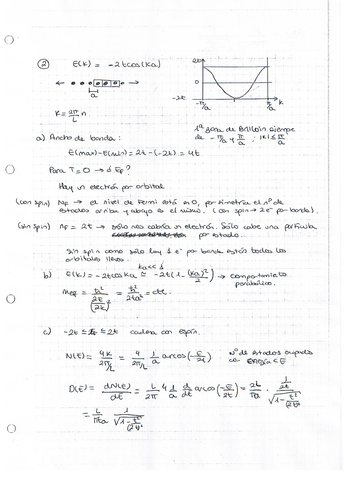 ② E(k) = -2t cos(ka)
2t
0
-2t
-π/a
π/a
k
a
k = 2π/L n
1ª zona de Brillouin siempre
de -π/a y π/a ; |k| ≤ π/a
a) Ancho de banda:
E(max) - E(min) = 2t - (-2t) = 4t
Para T=0 → ¿ EF?
Hay un electrón por orbital
(con spin) NF → el nivel de Fermi está en 0, por simetría el nº de
estados arriba y abajo es el mismo. (con spin → 2 e⁻ por banda).
(sin spin) NF = 2t → sólo nos cabría un electrón. Sólo cabe una partícula
por estado.
Sin spin como sólo hay 1 e⁻ por banda están todos los
orbitales llenos.
b) E(k) = -2t cos ka ≈ -2t(1 - (ka)²/2) → comportamiento
ka<<1
parabólico.
= ħ²/2ta² = cte.
c) -2t ≤ ≤ 2t cadena con espín.
N(E) = 4k/2π/L = 4/2π/L 1/a arcos(-E/2t) Nº de estados ocupados
con energía < E
D(E) = dN(E)/dE = L/2π 4 1/a d/dE arcos(-E/2t) = 2L/πa · 1/2t/√1-E²/(2t)²
= L/πta 1/√1-E²/(2t)²